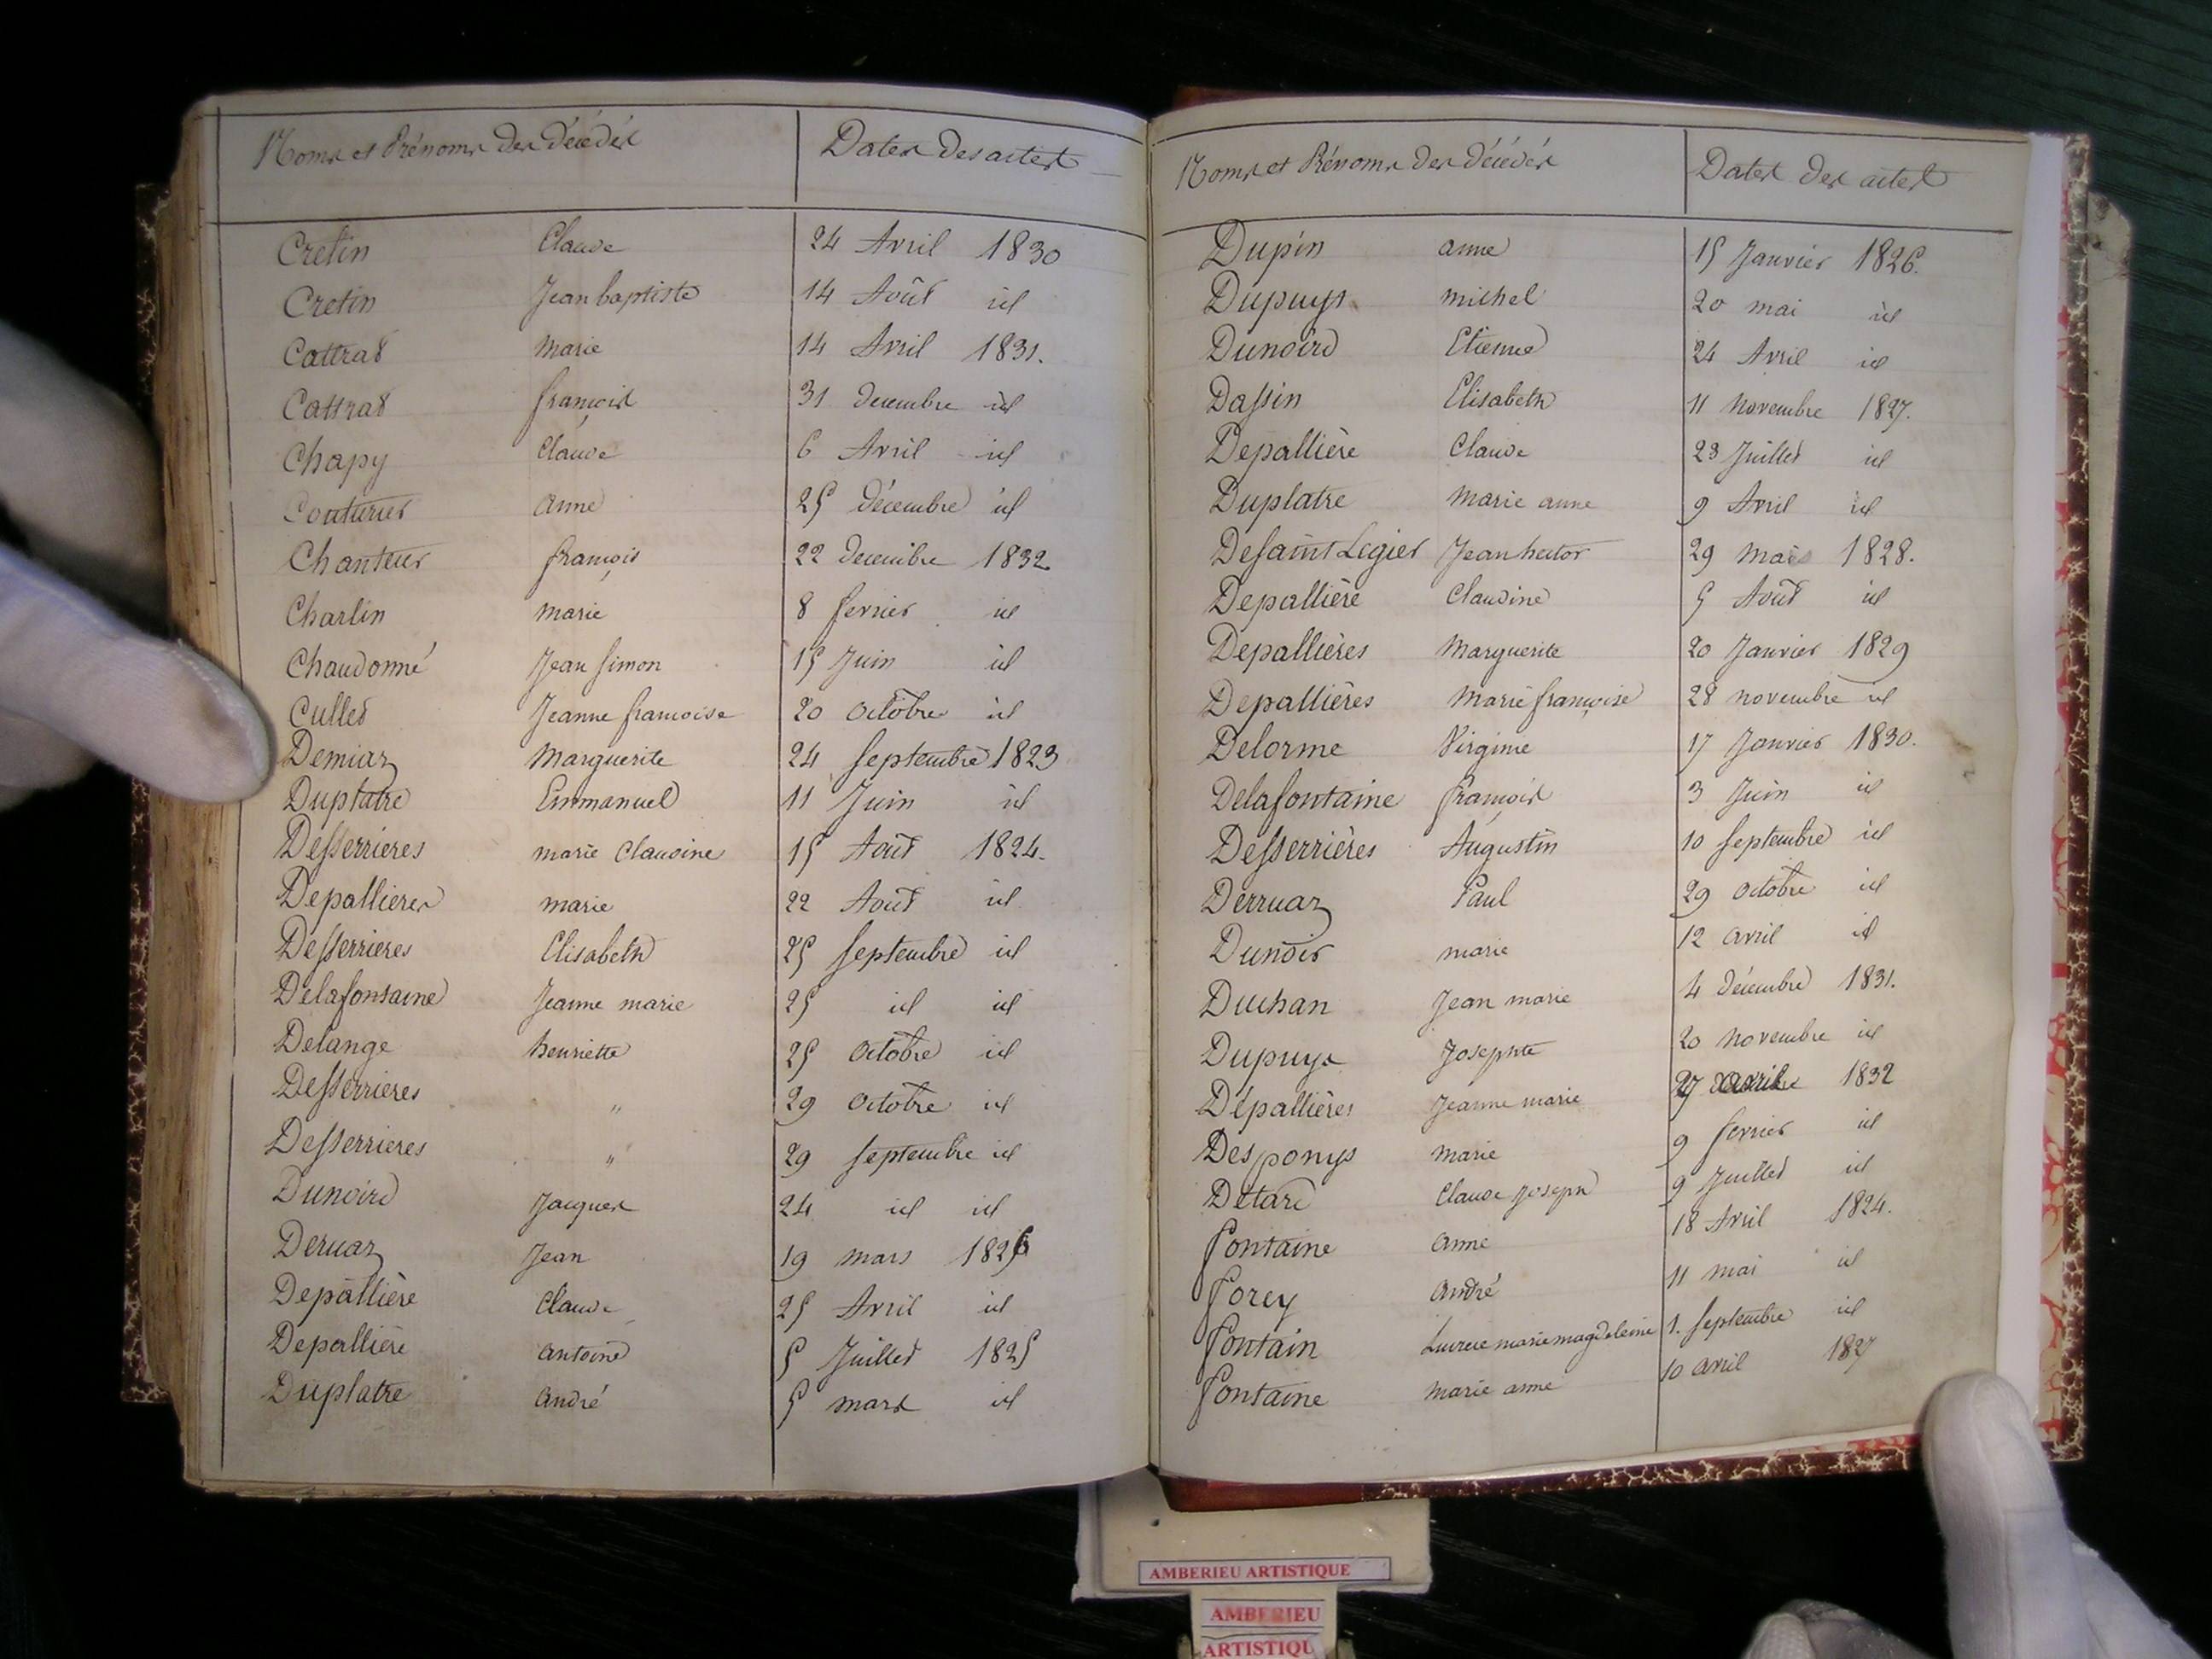 Noms et Prénoms des décédés Dates des actes
Cretin Claude 24 Avril 1830
Cretin Jean baptiste 14 Août id
Cattrat Marie 14 Avril 1831.
Cattrat françois 31 decembre id
Chapy Claude 6 Avril id
Couturier anne 25 décembre id
Chanteur françois 22 decembre 1832
Charlin marie 8 fevrier id
Chaudonné Jean Simon 15 Juin id
Cullet Jeanne françoise 20 octobre id
Demiaz Marguerite 24 septembre 1823
Duplatre Emmanuel 11 Juin id
Desserrieres marie Claudine 15 Août 1824.
Depallieres marie 22 Août id
Desserrieres Elisabeth 25 septembre id
Delafontaine Jeanne marie 25 id id
Delange henriette 25 octobre id
Desserrieres " 29 octobre id
Desserrieres " 29 septembre id
Dunoird Jacques 24 id id
Deruaz Jean 19 mars
Depallière Claude 25 Avril id
Depallière antoine 5 Juillet 1825
Duplatre andré 5 mars id
Noms et Prénoms des décédés Dates des actes
Dupin anne 15 Janvier 1826.
Dupuys michel 20 mai id
Dunoird Etienne 24 Avril id
Dassin Elisabeth 11 Novembre 1827.
Depallière Claude 23 Juillet id
Duplatre marie anne 9 Avril id
Desaint Legier Jean hector 29 mars 1828.
Depallière Claudine 5 Août id
Depallières Marguerite 20 Janvier 1829
Depallières Marie françoise 28 novembre id
Delorme Virginie 17 Janvier 1830.
Delafontaine françois 3 Juin id
Desserrières Augustin 10 septembre id
Derruaz Paul 29 octobre id
Dunoir marie 12 avril id
Duchan Jean marie 4 décembre 1831.
Dupuys Josephte 20 novembre id
Depallières Jeanne marie 27 avril 1832
Desponys marie 9 fevrier id
Détard Claude Joseph 9 Juillet id
fontaine anne 18 Avril 1824.
forey andré 11 mai id
fontain Lucrece marie magdeleine 1. septembre id
fontaine marie anne 10 avril 1827
AMBERIEU ARTISTIQUE
AMBERIEU
ARTISTIQU